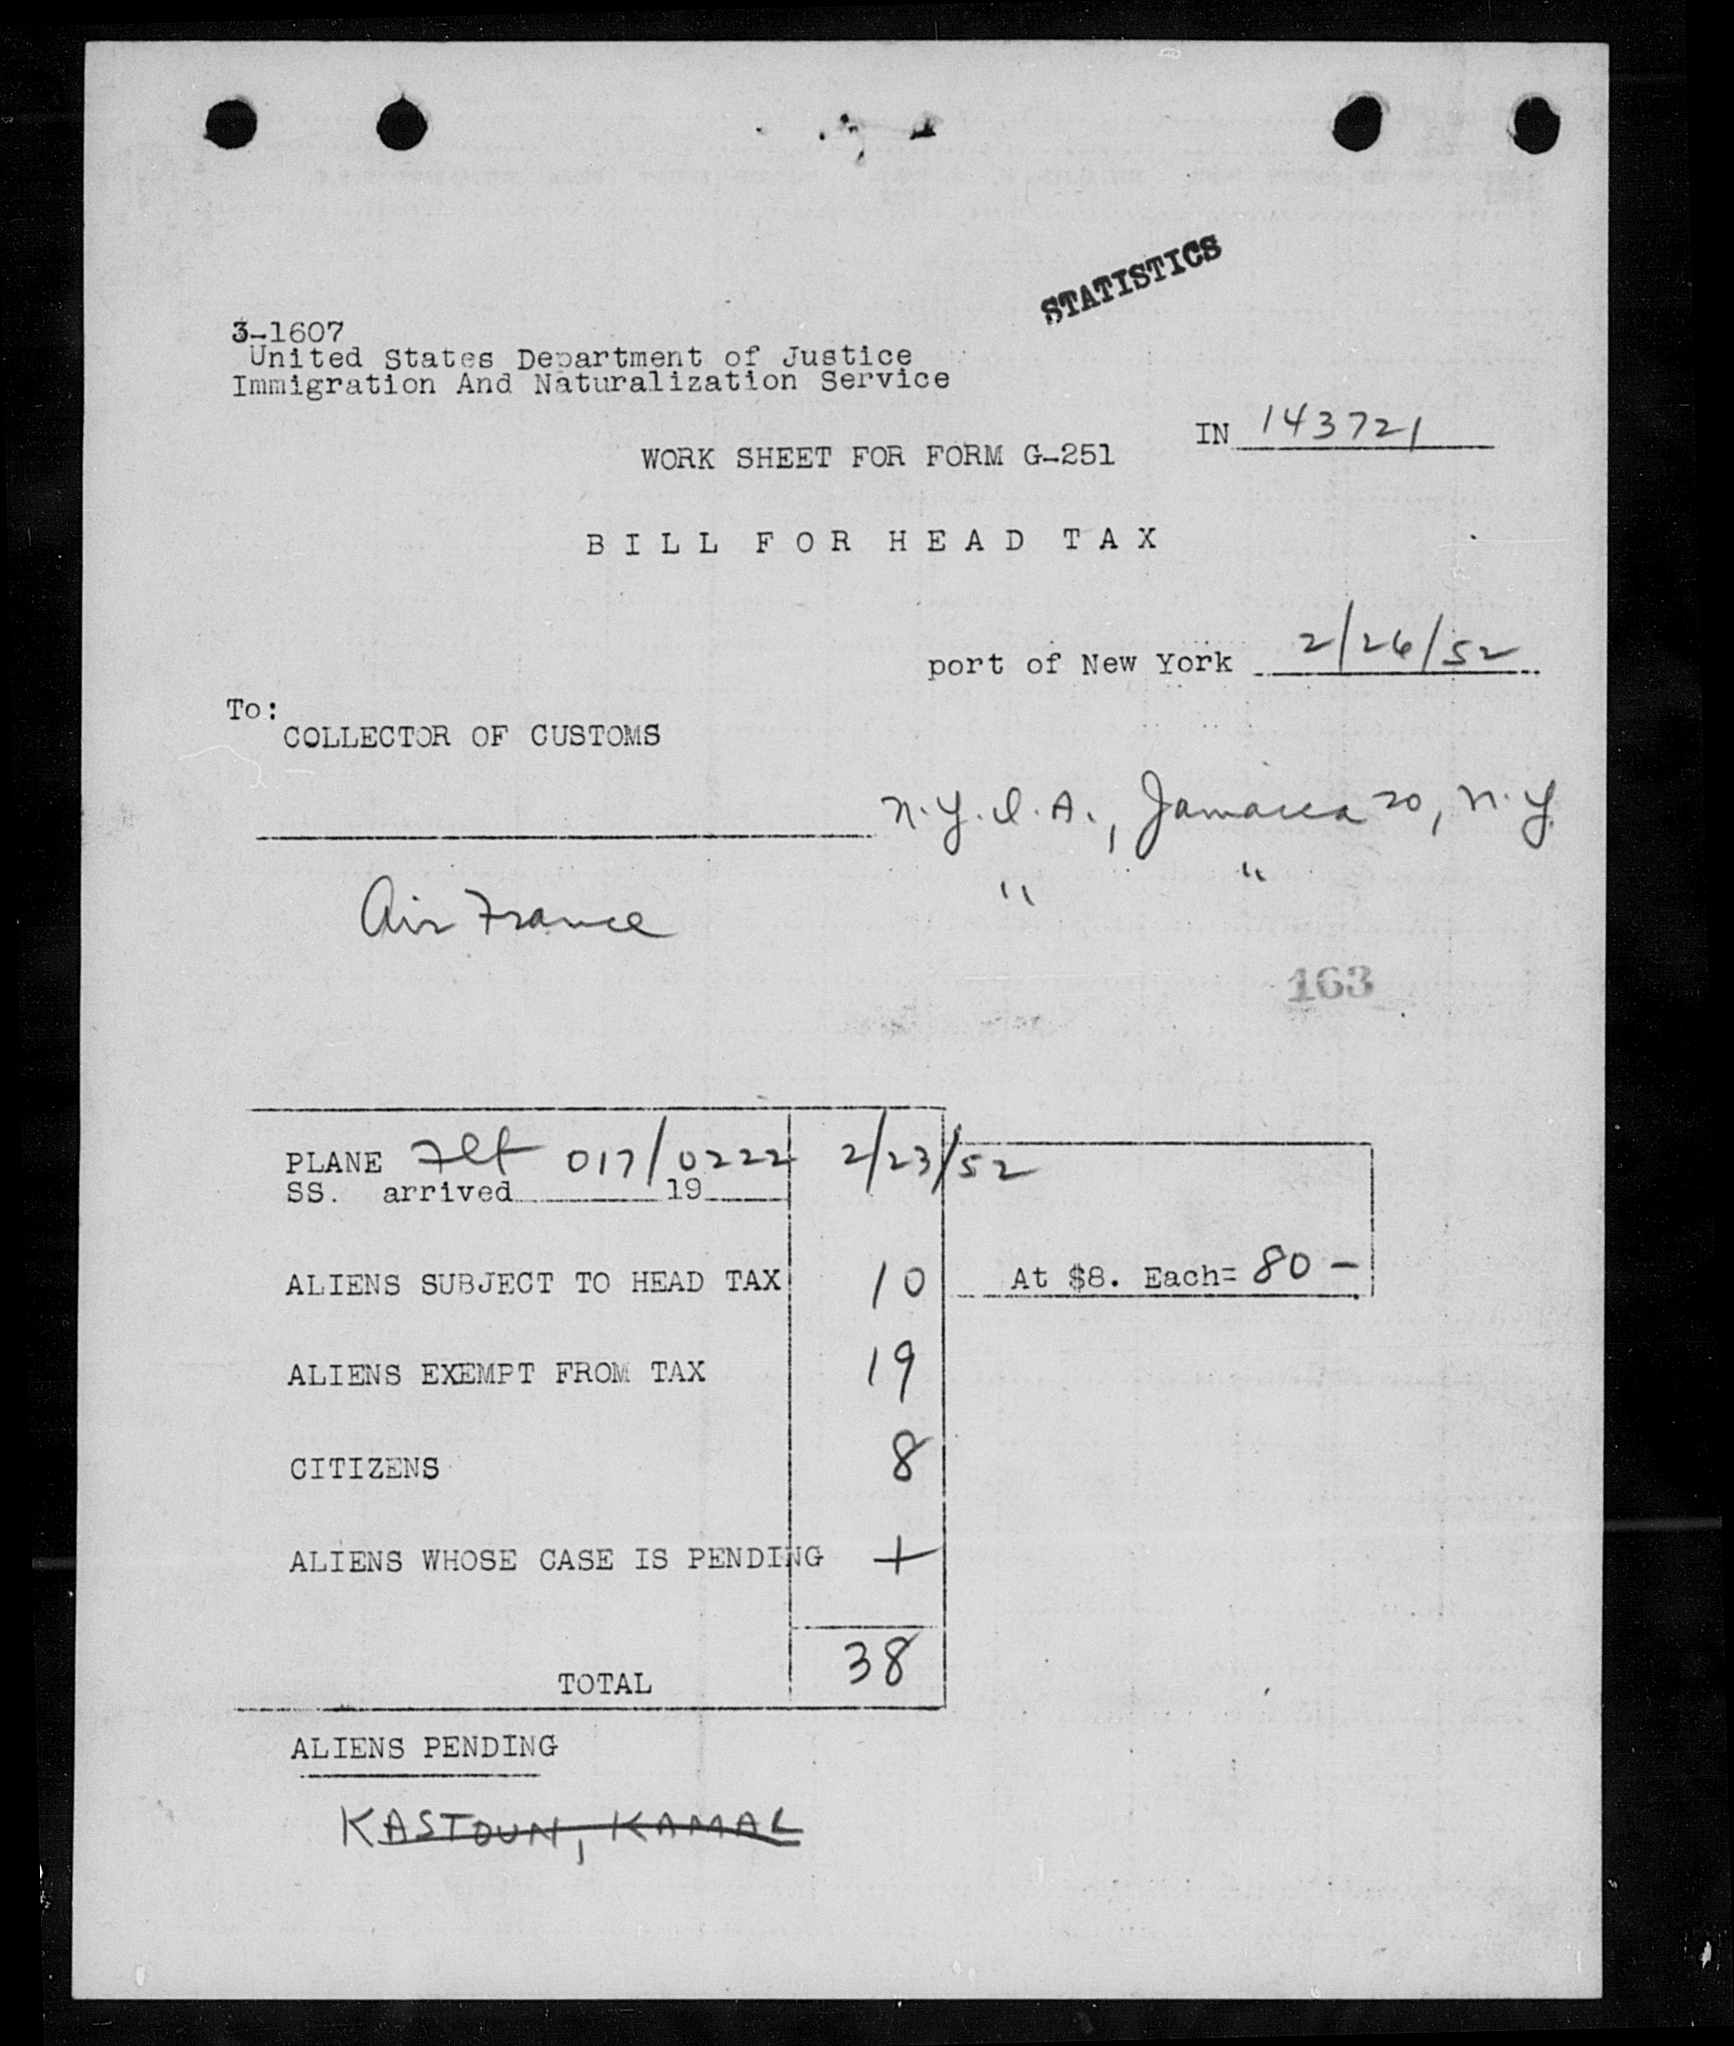 STATISTICS
3-1607
United States Department of Justice
Immigration And Naturalization Service
IN 143721
WORK SHEET FOR FORM G-251
BILL FOR HEAD TAX
port of New York 2/26/52
To:
COLLECTOR OF CUSTOMS
N.Y.I.A., Jamaica 20, N.Y.
Air France " "
163
PLANE Flt 017/0222 2/23/52
SS. arrived 19
ALIENS SUBJECT TO HEAD TAX 10 At $8. Each= 80-
ALIENS EXEMPT FROM TAX 19
CITIZENS 8
ALIENS WHOSE CASE IS PENDING +
TOTAL 38
ALIENS PENDING
KASTOUN, KAMAL